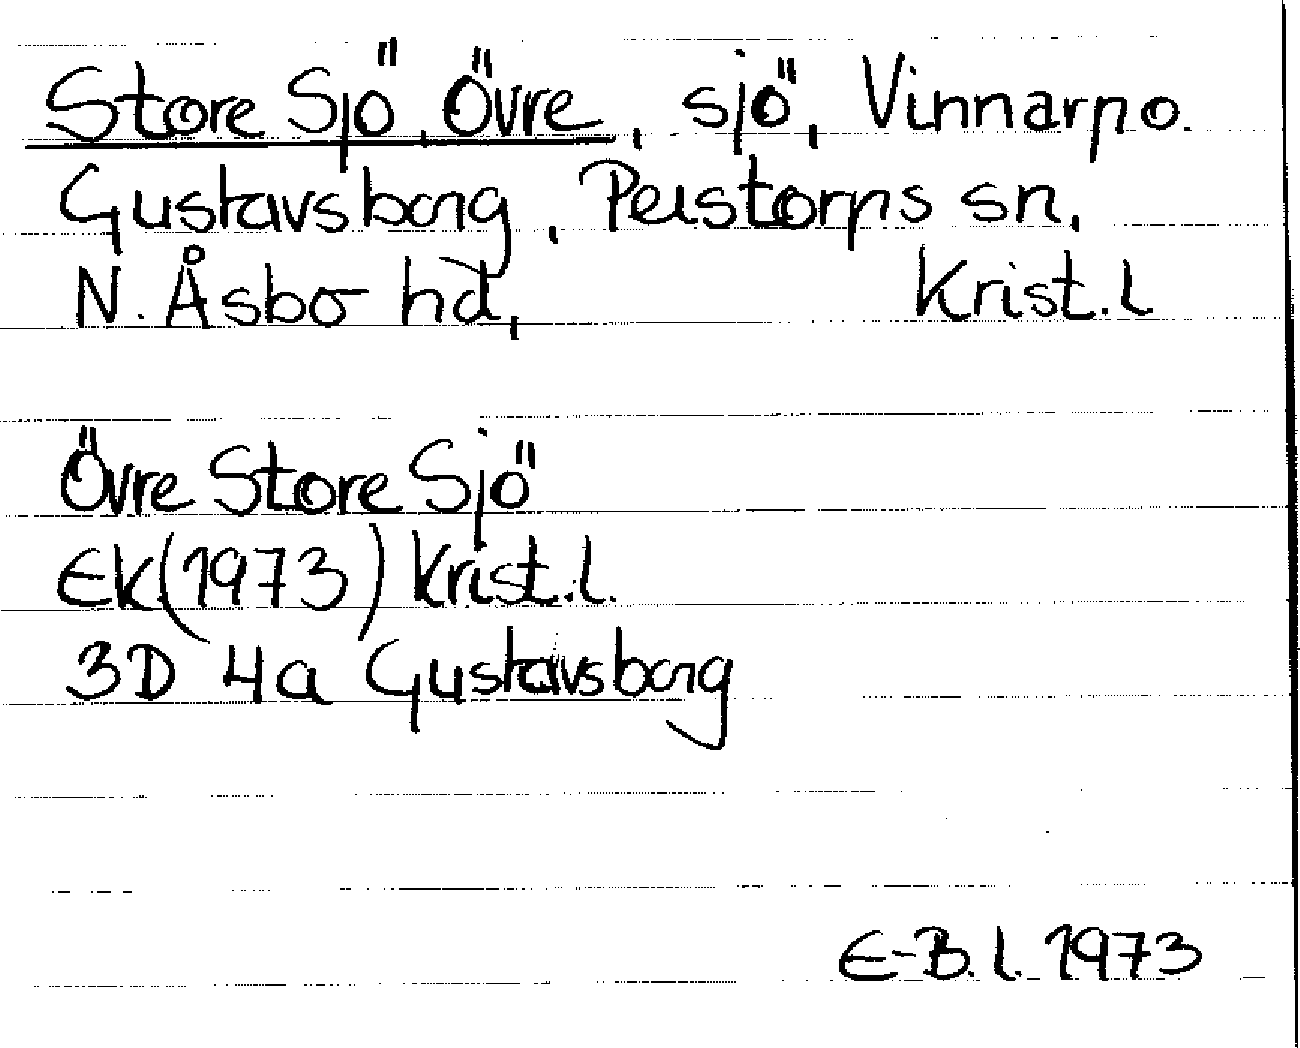 Store Sjö, Övre, sjö, Vinnarp o.
Gustavsborg, Perstorps sn,
N. Åsbo hd, Krist. l
Övre Store Sjö
EK (1973) Krist. l.
3D 4a Gustavsborg
E-B. l. 1973